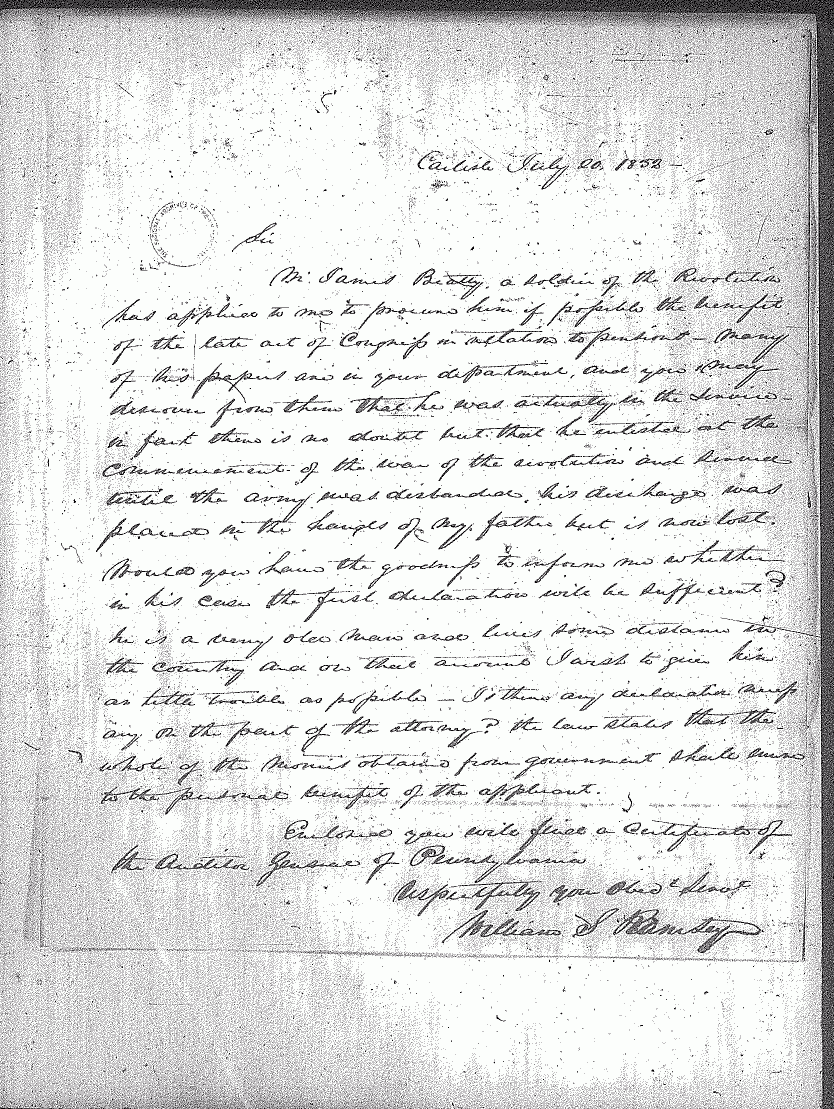 Carlisle July 20. 1832 –
Sir
Mr James Beatty, a soldier of the Revolution
has applied to me to procure him if possible the benefit
of the late act of Congress in relation to pensions – Many
of his papers are in your department, and you may
discover from them that he was actually in the service –
in fact there is no doubt but that he enlisted at the
commencement of the war of the revolution and served
until the army was disbanded, his discharge was
placed in the hands of my father but is now lost.
Would you have the goodness to inform me whether
in his case the first declaration will be sufficient?
he is a very old man and lives some distance in
the country and on that account I wish to give him
as little trouble as possible – Is there any declaration necess
ary on the part of the attorney? the law states that the
whole of the monies obtained from government shall enure
to the personal benefit of the applicant.
Enclosed you will find a certificate of
the Auditor General of Pennsylvania
respectfully your Obedt Servt
William S Ramsey